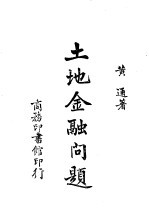 黄通著
土地金融問題
商務印書館印行